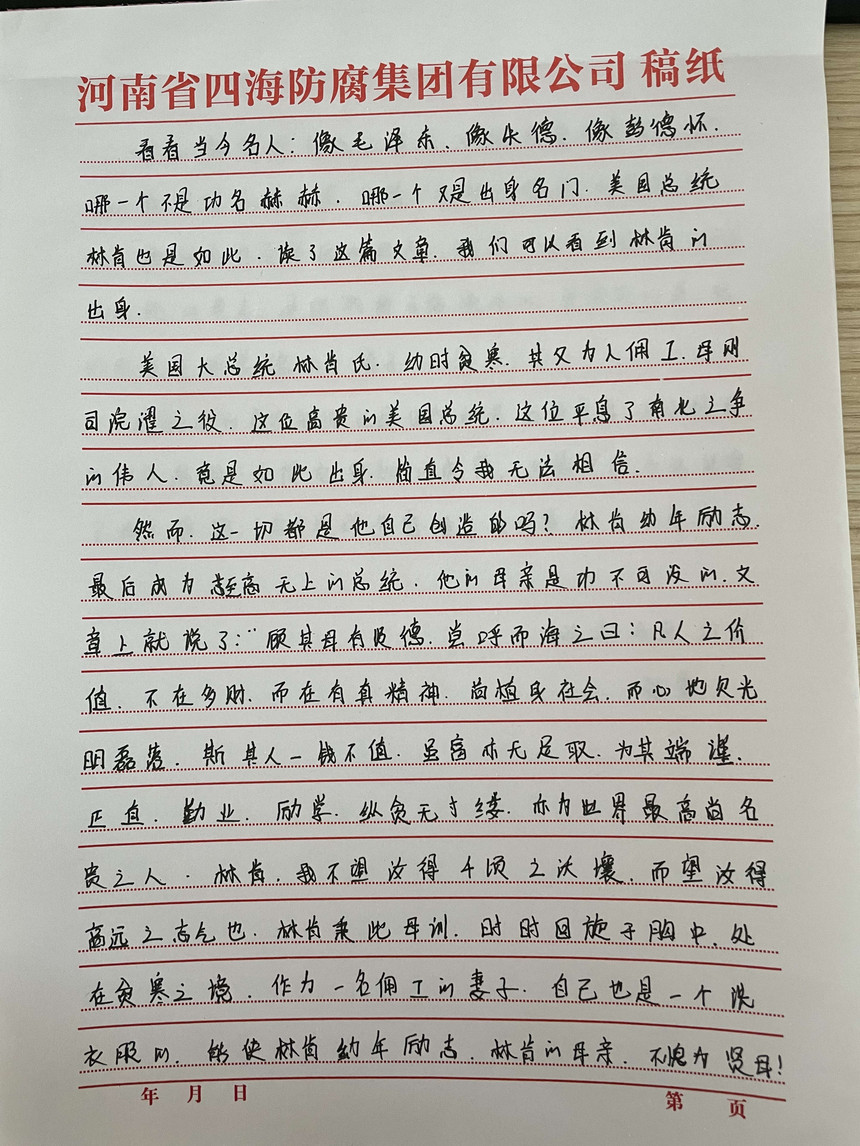 河南省四海防腐集团有限公司 稿纸
看看当今名人：像毛泽东、像朱德、像彭德怀.
哪一个不是功名赫赫.哪一个又是出身名门.美国总统
林肯也是如此.除了这篇文章.我们可以看到林肯的
出身.
美国大总统林肯氏.幼时贫寒.其父为人佣工.母则
司浣濯之役.这位高贵的美国总统.这位平息了南北之争
的伟人.竟是如此出身.简直令我无法相信.
然而.这一切都是他自己创造的吗？林肯幼年励志.
最后成为至高无上的总统.他的母亲是功不可没的.文
章上就说了：“顾其母有贤德.尝呼而诲之曰：凡人之价
值.不在多财.而在有真精神.尚植民社会.而心地欠光
明磊落.斯其人一钱不值.虽富亦无足取.为其端谨.
正直.勤业.励学.纵贫无寸缕.亦为世界最高尚名
贵之人.林肯.我不望汝得千顷之沃壤.而望汝得
高远之志气也.林肯秉此母训.时时回旋于胸中.处
在贫寒之境.作为一名佣工的妻子.自己也是一个洗
衣服的.能使林肯幼年励志.林肯的母亲.不愧为贤母！
年 月 日
第 页